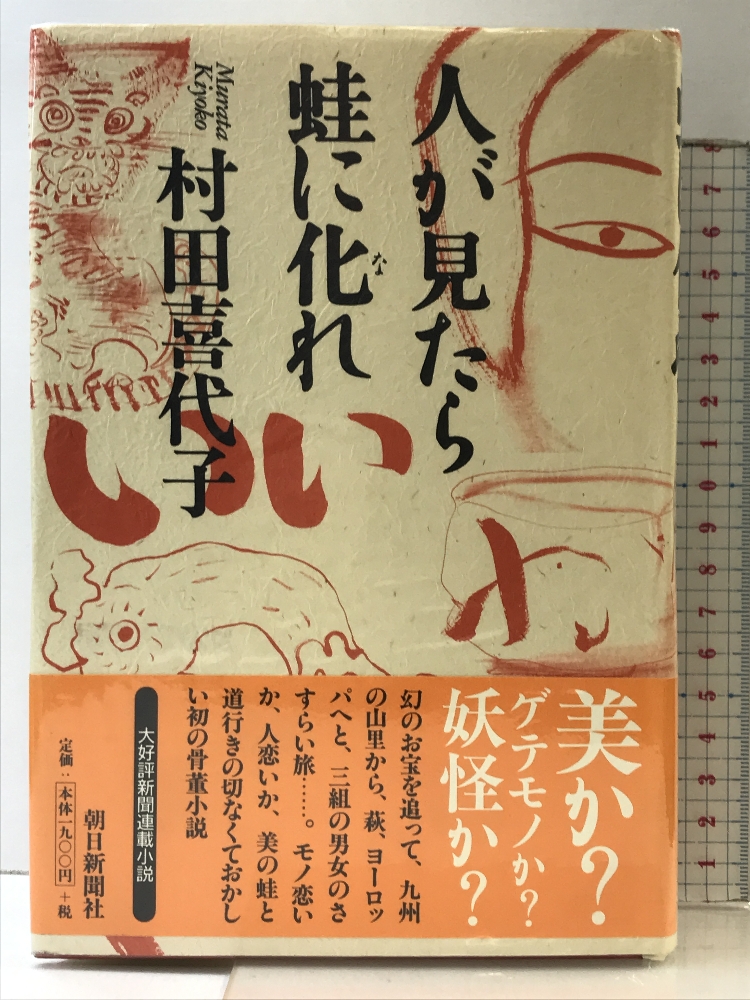 人が見たら
蛙に化れ
な
Murata
Kiyoko
村田喜代子
美か?
ゲテモノか?
妖怪か?
幻のお宝を追って、九州
の山里から、萩、ヨーロッ
パへと、三組の男女のさ
すらい旅……。モノ恋い
か、人恋いか、美の蛙と
道行きの切なくておかし
い初の骨董小説
大好評新聞連載小説
朝日新聞社
定価:本体一九〇〇円+税
8
7
6
5
4
3
2
1
0
9
8
7
6
5
4
3
2
1